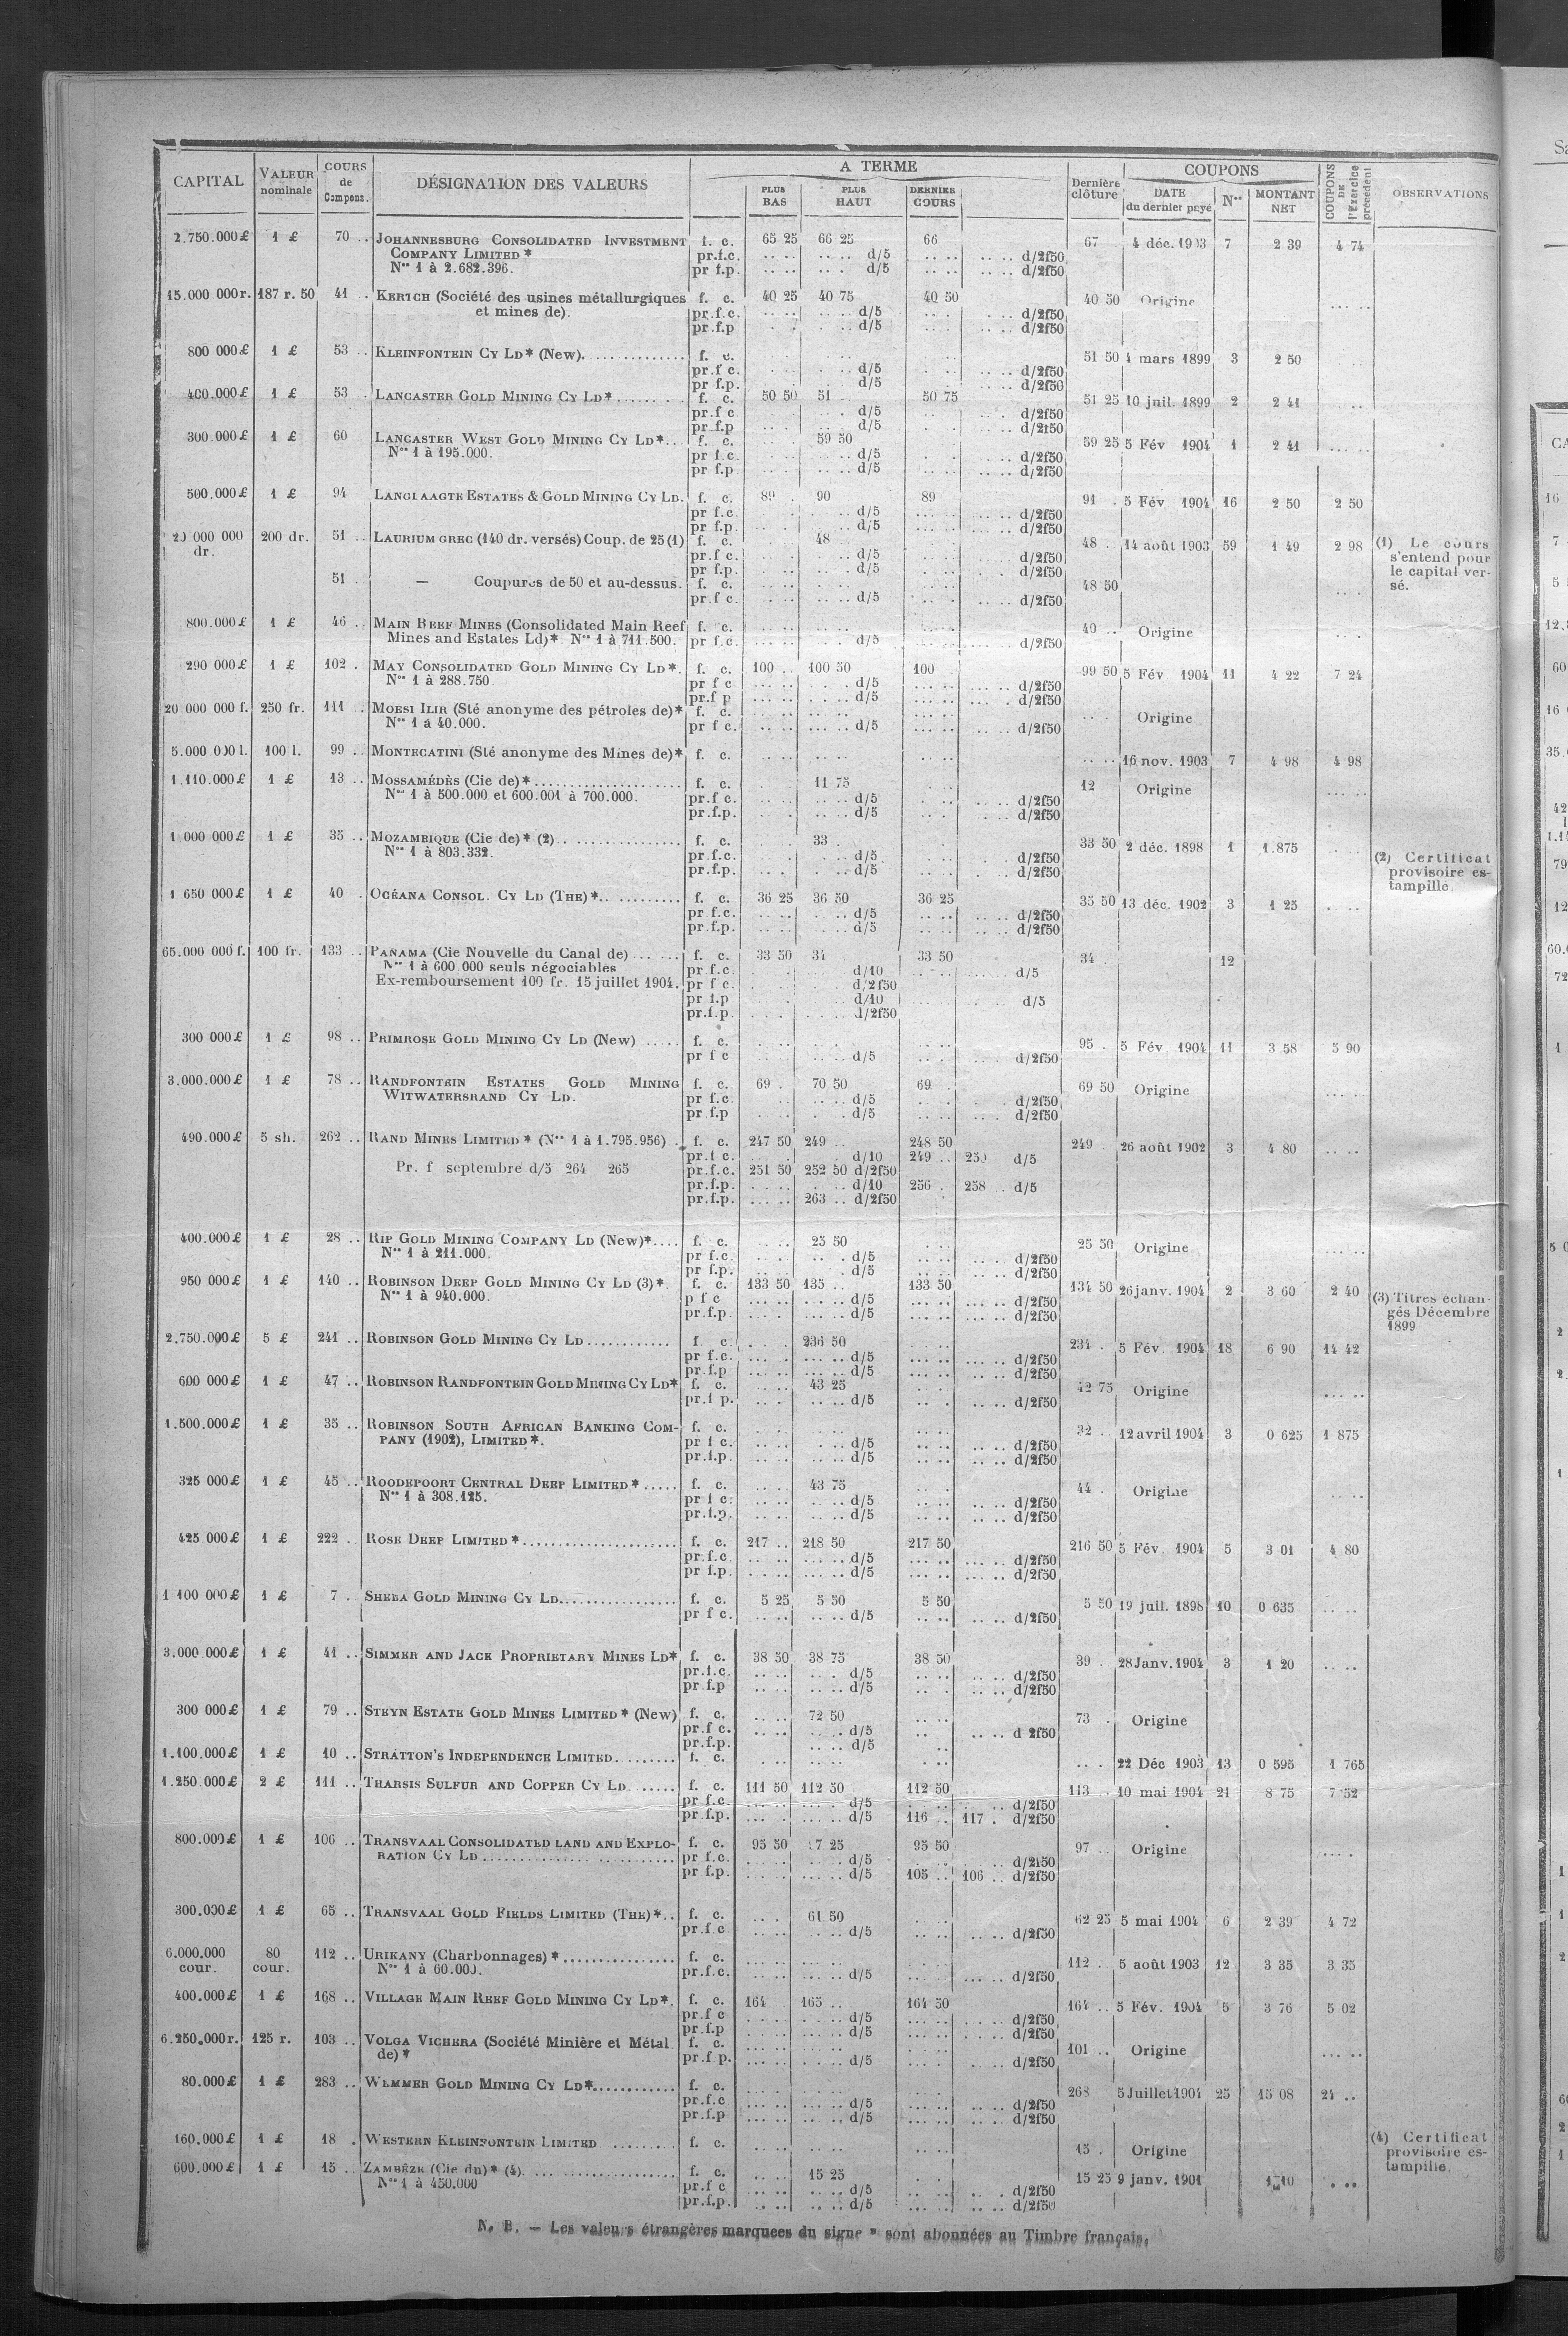 CAPITAL VALEUR nominale COURS de Compens. DÉSIGNATION DES VALEURS A TERME Dernière clôture COUPONS COUPONS DE l'Exercice précédent OBSERVATIONS
PLUS BAS PLUS HAUT DERNIER COURS DATE du dernier payé Nos MONTANT NET
2.750.000£ 1 £ 70 .. JOHANNESBURG CONSOLIDATED INVESTMENT f. c. 65 25 66 25 66 67 4 déc. 1903 7 2 39 4 74
COMPANY LIMITED * pr.f.c. d/5 d/2f50
Nos 1 à 2.682.396. pr f.p. d/5 d/2f50
15.000 000r. 187 r. 50 41 . KERTCH (Société des usines métallurgiques f. c. 40 25 40 75 40 50 40 50 Origine
et mines de). pr.f.c. d/5 d/2f50
pr.f.p d/5 d/2f50
800 000£ 1 £ 53 .. KLEINFONTEIN CY LD* (New). f. c. 51 50 4 mars 1899 3 2 50
pr.f c. d/5 d/2f50
pr f.p. d/5 d/2f50
400.000£ 1 £ 53 . LANCASTER GOLD MINING CY LD* f. c. 50 50 51 50 75 51 25 10 juil. 1899 2 2 41
pr.f c d/5 d/2f50
pr.f.p d/5 d/2f50
300.000£ 1 £ 60 LANCASTER WEST GOLD MINING CY LD* f. c. 59 50 59 25 5 Fév 1904 1 2 41
Nos 1 à 195.000. pr f.c. d/5 d/2f50
pr f.p d/5 d/2f50
500.000£ 1 £ 94 LANGLAAGTE ESTATES & GOLD MINING CY LD. f. c. 89 . 90 89 91 . 5 Fév 1904 16 2 50 2 50
pr f.c. d/5 d/2f50
pr f.p. d/5 d/2f50
20 000 000 dr. 200 dr. 51 .. LAURIUM GREC (140 dr. versés) Coup. de 25 (1) f. c. 48 48 . 14 août 1903 59 1 49 2 98 (1) Le cours
pr.f c. d/5 d/2f50 s'entend pour
pr f.p. d/5 d/2f50 le capital ver-
51 .. — Coupures de 50 et au-dessus. f. c. 48 50 sé.
pr.f c. d/5 d/2f50
800.000£ 1 £ 46 .. MAIN REEF MINES (Consolidated Main Reef f. c. 40 .. Origine
Mines and Estates Ld)*. Nos 1 à 711.500. pr f.c. d/5 d/2f50
290 000£ 1 £ 102 . MAY CONSOLIDATED GOLD MINING CY LD*. f. c. 100 .. 100 50 100 99 50 5 Fév 1904 11 4 22 7 24
Nos 1 à 288.750 pr f c d/5 d/2f50
pr.f p d/5 d/2f50
20 000 000 f. 250 fr. 111 .. MOESI ILIR (Sté anonyme des pétroles de)* f. c. Origine
Nos 1 à 40.000. pr f c. d/5 d/2f50
5.000 000 l. 100 l. 99 .. MONTECATINI (Sté anonyme des Mines de)* f. c. 16 nov. 1903 7 4 98 4 98
1.110.000£ 1 £ 13 .. MOSSAMÉDÈS (Cie de)* f. c. 11 75 12 Origine
Nos 1 à 500.000 et 600.001 à 700.000. pr.f c. d/5 d/2f50
pr.f.p. d/5 d/2f50
1 000 000£ 1 £ 35 .. MOZAMBIQUE (Cie de)* (2) f. c. 33 . 33 50 2 déc. 1898 1 1.875
Nos 1 à 803.332. pr.f.c. d/5 d/2f50 (2) Certificat
pr.f.p. d/5 d/2f50 provisoire es-
1 650 000£ 1 £ 40 . OCÉANA CONSOL. CY LD (THE)*. f. c. 36 25 36 50 36 25 35 50 13 déc. 1902 3 1 25 tampille.
pr f.c. d/5 d/2f50
pr.f.p. d/5 d/2f50
65.000 000 f. 100 fr. 133 .. PANAMA (Cie Nouvelle du Canal de) f. c. 33 50 34 33 50 34 . 12
Nos 1 à 600.000 seuls négociables pr f.c. d/10 d/5
Ex-remboursement 100 fr. 15 juillet 1904. pr f c. d/2f50
pr f.p d/10 d/5
pr.f.p. d/2f50
300 000£ 1 £ 98 .. PRIMROSE GOLD MINING CY LD (New) f. c. 95 . 5 Fév. 1904 11 3 58 5 90
pr f c d/5 d/2f50
3.000.000£ 1 £ 78 .. RANDFONTEIN ESTATES GOLD MINING f. c. 69 . 70 50 69 . 69 50 Origine
WITWATERSRAND CY LD. pr f.c. d/5 d/2f50
pr f.p d/5 d/2f50
490.000£ 5 sh. 262 .. RAND MINES LIMITED * (Nos 1 à 1.795.956) f. c. 247 50 249 .. 248 50 249 26 août 1902 3 4 80
pr.f c. d/10 249 .. 250 d/5
Pr. f septembre d/5 264 265 pr.f.c. 251 50 252 50 d/2f50
pr.f.p. d/10 256 . 258 . d/5
pr.f.p. 263 .. d/2f50
400.000£ 1 £ 28 .. RIP GOLD MINING COMPANY LD (New)* f. c. 25 50 25 50 Origine
Nos 1 à 211.000. pr f.c. d/5 d/2f50
pr f.p. d/5 d/2f50
950 000£ 1 £ 140 .. ROBINSON DEEP GOLD MINING CY LD (3)*. f. c. 133 50 135 .. 133 50 134 50 26 janv. 1904 2 3 60 2 40 (3) Titres échan-
Nos 1 à 940.000. p f c d/5 d/2f50 gés Décembre
pr.f.p. d/5 d/2f50 1899
2.750.000£ 5 £ 241 .. ROBINSON GOLD MINING CY LD f. c. 236 50 234 . 5 Fév. 1904 18 6 90 14 42
pr f.c. d/5 d/2f50
pr.f.p d/5 d/2f50
600 000£ 1 £ 47 .. ROBINSON RANDFONTEIN GOLD MINING CY LD* f. c. 43 25 42 75 Origine
pr.f p. d/5 d/2f50
1.500.000£ 1 £ 35 .. ROBINSON SOUTH AFRICAN BANKING COM- f. c. 32 . 12 avril 1904 3 0 625 1 875
PANY (1902), LIMITED *. pr f c. d/5 d/2f50
pr.f.p. d/5 d/2f50
325 000£ 1 £ 45 .. ROODEPOORT CENTRAL DEEP LIMITED * f. c. 43 75 44 . Origine
Nos 1 à 308.125. pr f c. d/5 d/2f50
pr.f.p. d/5 d/2f50
425 000£ 1 £ 222 .. ROSE DEEP LIMITED * f. c. 217 .. 218 50 217 50 216 50 5 Fév. 1904 5 3 01 4 80
pr.f.c. d/5 d/2f50
pr f.p. d/5 d/2f50
1 100 000£ 1 £ 7 . SHEBA GOLD MINING CY LD. f. c. 5 25 5 50 5 50 5 50 19 juil. 1898 10 0 635
pr f c. d/5 d/2f50
3.000.000£ 1 £ 41 .. SIMMER AND JACK PROPRIETARY MINES LD* f. c. 38 50 38 75 38 50 39 . 28 Janv. 1904 3 1 20
pr.f.c. d/5 d/2f50
pr f.p d/5 d/2f50
300 000£ 1 £ 79 .. STEYN ESTATE GOLD MINES LIMITED * (New) f. c. 72 50 73 . Origine
pr.f c. d/5 d 2f50
pr.f.p. d/5
1.100.000£ 1 £ 10 .. STRATTON'S INDEPENDENCE LIMITED. f. c. 22 Déc 1903 13 0 595 1 765
1.250.000£ 2 £ 111 .. THARSIS SULFUR AND COPPER CY LD f. c. 111 50 112 50 112 50 113 . 10 mai 1904 21 8 75 7 52
pr f.c. d/5 d/2f50
pr.f.p. d/5 116 .. 117 . d/2f50
800.000£ 1 £ 106 .. TRANSVAAL CONSOLIDATED LAND AND EXPLO- f. c. 95 50 7 25 95 50 97 .. Origine
RATION CY LD pr f.c. d/5 d/2f50
pr f.p. d/5 105 .. 106 .. d/2f50
300.000£ 1 £ 65 .. TRANSVAAL GOLD FIELDS LIMITED (THE)* f. c. 61 50 62 25 5 mai 1904 6 2 39 4 72
pr.f c d/5 d/2f50
6.000.000 cour. 80 cour. 112 .. URIKANY (Charbonnages) * f. c. 112 . 5 août 1903 12 3 35 3 35
Nos 1 à 60.000. pr.f.c. d/5 d/2f50
400.000£ 1 £ 168 .. VILLAGE MAIN REEF GOLD MINING CY LD*. f. c. 164 165 .. 164 50 164 .. 5 Fév. 1904 5 3 76 5 02
pr.f c d/5 d/2f50
pr.f.p d/5 d/2f50
6.250.000r. 125 r. 103 .. VOLGA VICHERA (Société Minière et Métal. f. c. 101 .. Origine
de) * pr.f p. d/5 d/2f50
80.000£ 1 £ 283 .. WEMMER GOLD MINING CY LD*. f. c. 268 5 Juillet 1904 25 15 08 24 ..
pr.f.c d/5 d/2f50
pr.f.p d/5 d/2f50
160.000£ 1 £ 18 . WESTERN KLEINFONTEIN LIMITED f. c. 15 . Origine (4) Certificat
provisoire es-
600.000£ 1 £ 15 .. ZAMBÈZE (Cie du)* (4). f. c. 15 25 15 25 9 janv. 1901 1 10 tampille.
Nos 1 à 450.000 pr.f c d/5 d/2f50
pr.f.p. d/5 d/2f50
N. B. — Les valeurs étrangères marquees du signe * sont abonnées au Timbre français.